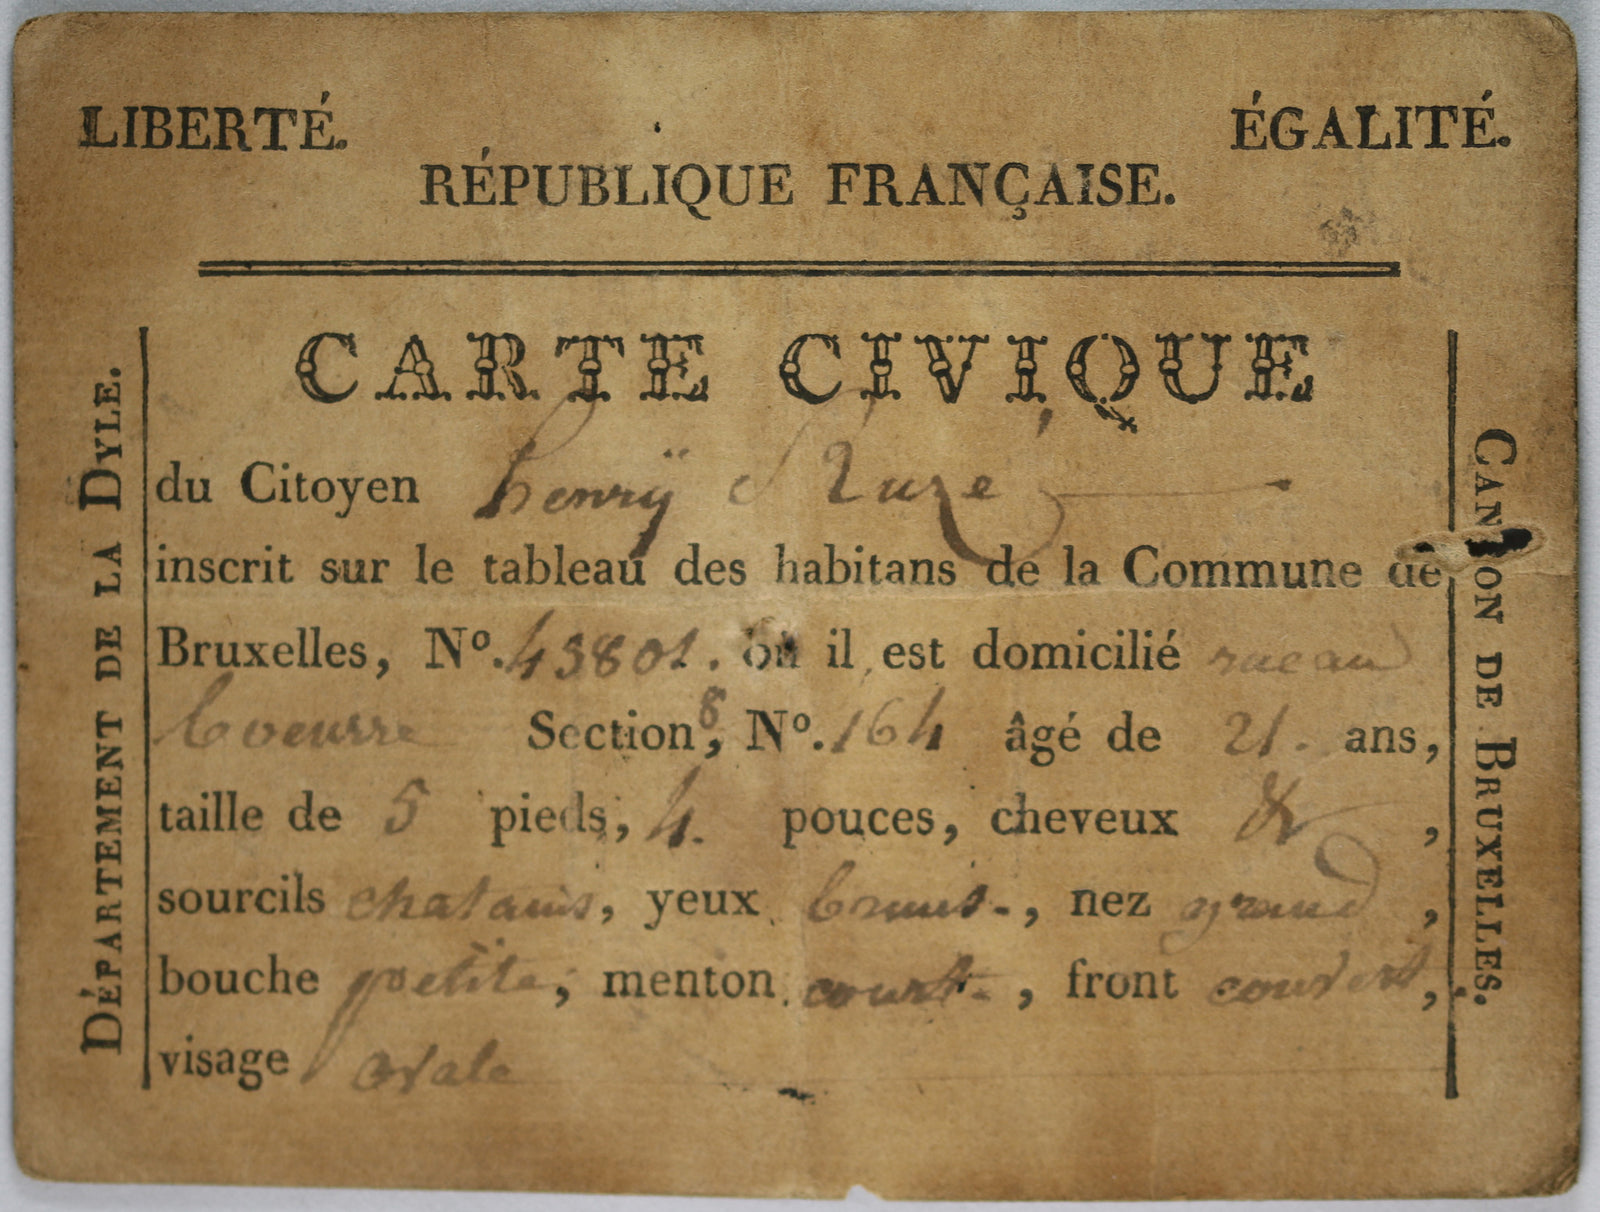 LIBERTÉ. ÉGALITÉ.
RÉPUBLIQUE FRANÇAISE.
CARTE CIVIQUE
du Citoyen henrÿ
inscrit sur le tableau des habitans de la Commune de
Bruxelles, Nº. 43801. où il est domicilié rue au
beurre Section 8, Nº. 164 âgé de 21. ans,
taille de 5 pieds, 4. pouces, cheveux &,
sourcils chatains, yeux bruns., nez grand,
bouche petite, menton court., front couvert,
visage ovale
DÉPARTEMENT DE LA DYLE.
CANTON DE BRUXELLES.